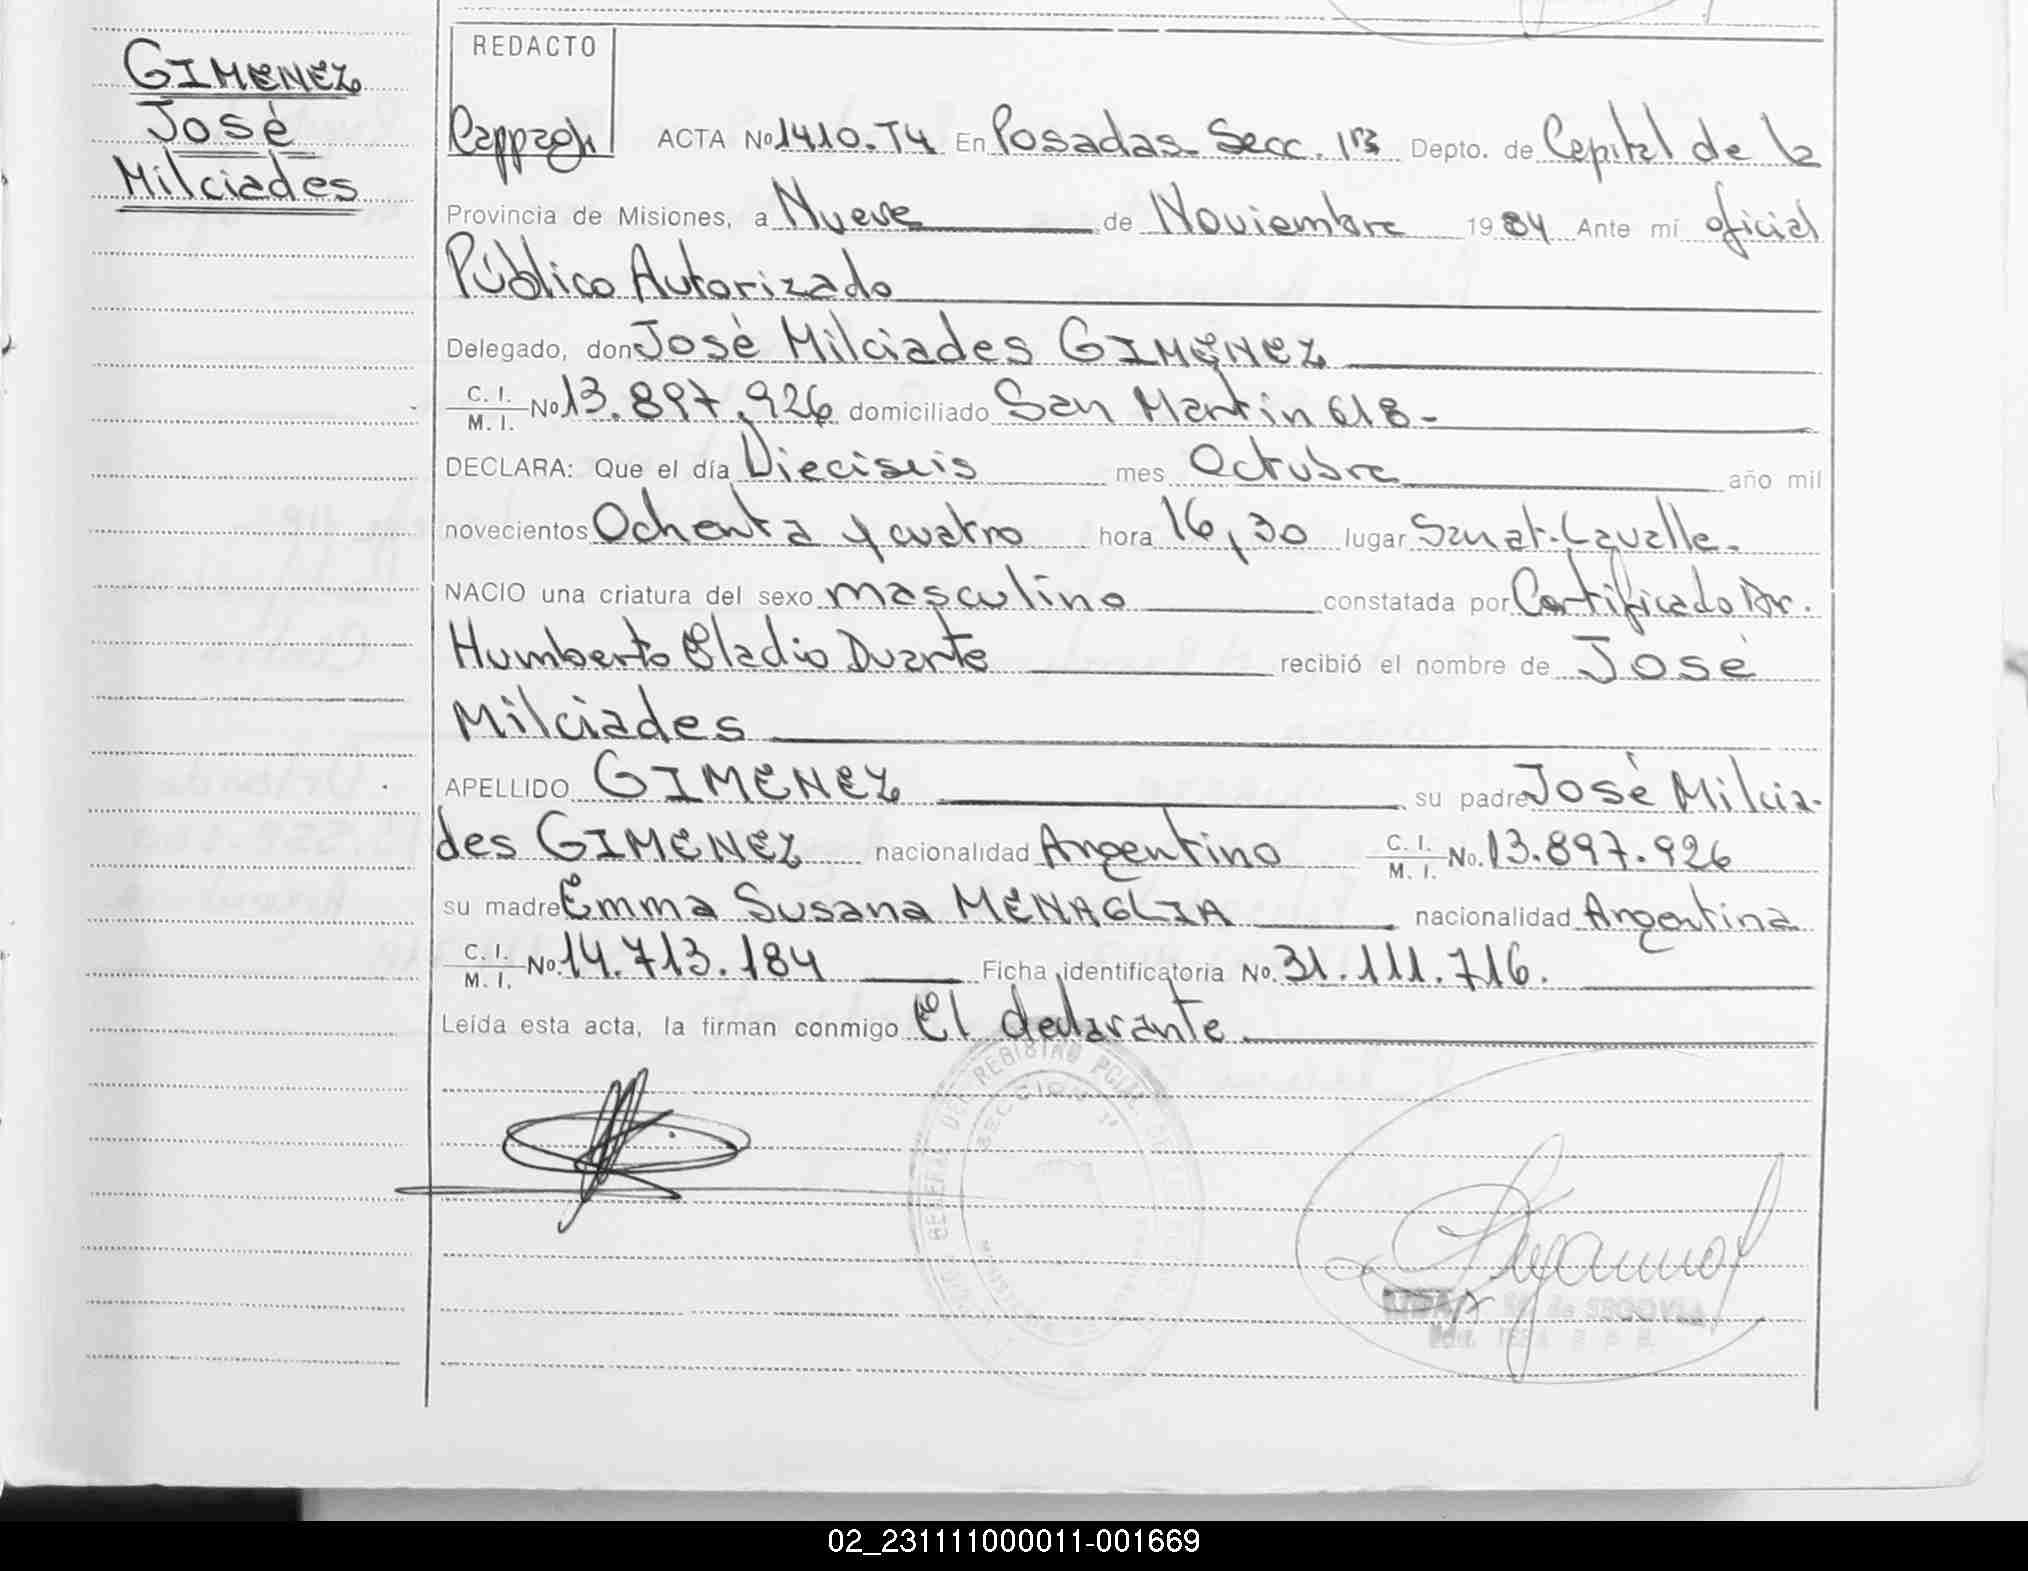 GIMENEZ
José
Milciades
REDACTO
ACTA No 1410. T4 En Posadas. Secc. 1ra Depto. de Capital de la
Provincia de Misiones, a Nueve de Noviembre 1984 Ante mí oficial
Público Autorizado
Delegado, don José Milciades GIMENEZ
C. I.
M. I. No 13.897.926 domiciliado San Martin 618-
DECLARA: Que el día Dieciseis mes Octubre año mil
novecientos Ochenta y cuatro hora 16,30 lugar Sanat. Lavalle.
NACIO una criatura del sexo masculino constatada por Certificado Dr.
Humberto Eladio Duarte recibió el nombre de José
Milciades
APELLIDO GIMENEZ su padre José Milcia-
des GIMENEZ nacionalidad Argentino C. I. M. I. No. 13.897.926
su madre Emma Susana MENAGLIA nacionalidad Argentina
C. I.
M. I. No. 14.713.184 Ficha identificatoria No. 31.111.716.
Leída esta acta, la firman conmigo El declarante.
REGISTRO PCIAL. DE
SECCION 1ª
de SEGOVIA
02_231111000011-001669